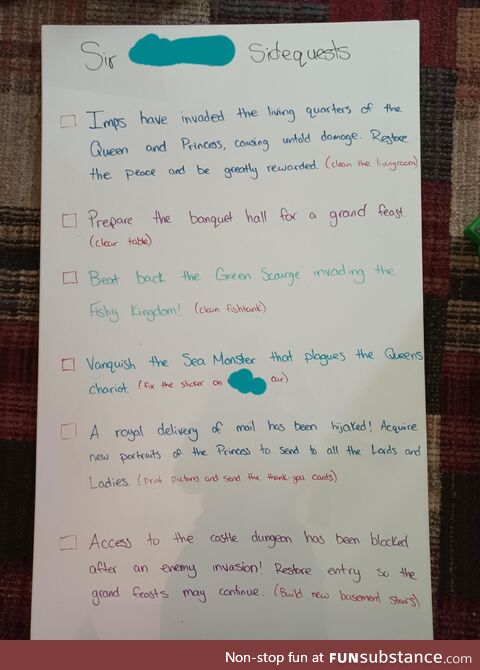 Sir Sidequests
Imps have invaded the living quarters of the
Queen and Princess, causing untold damage. Restore
the peace and be greatly rewarded. (clean the livingroom)
Prepare the banquet hall for a grand feast.
(clear table)
Beat back the Green Scourge invading the
Fishy Kingdom! (clean fishtank)
Vanquish the Sea Monster that plagues the Queens
chariot. (fix the sticker on car)
A royal delivery of mail has been hijaked! Acquire
new portraits of the Princess to send to all the Lords and
Ladies. (Print pictures and send the thank you cards)
Access to the castle dungeon has been blocked
after an enemy invasion! Restore entry so the
grand feasts may continue. (Build new basement stairs)
Non-stop fun at FUNsubstance.com